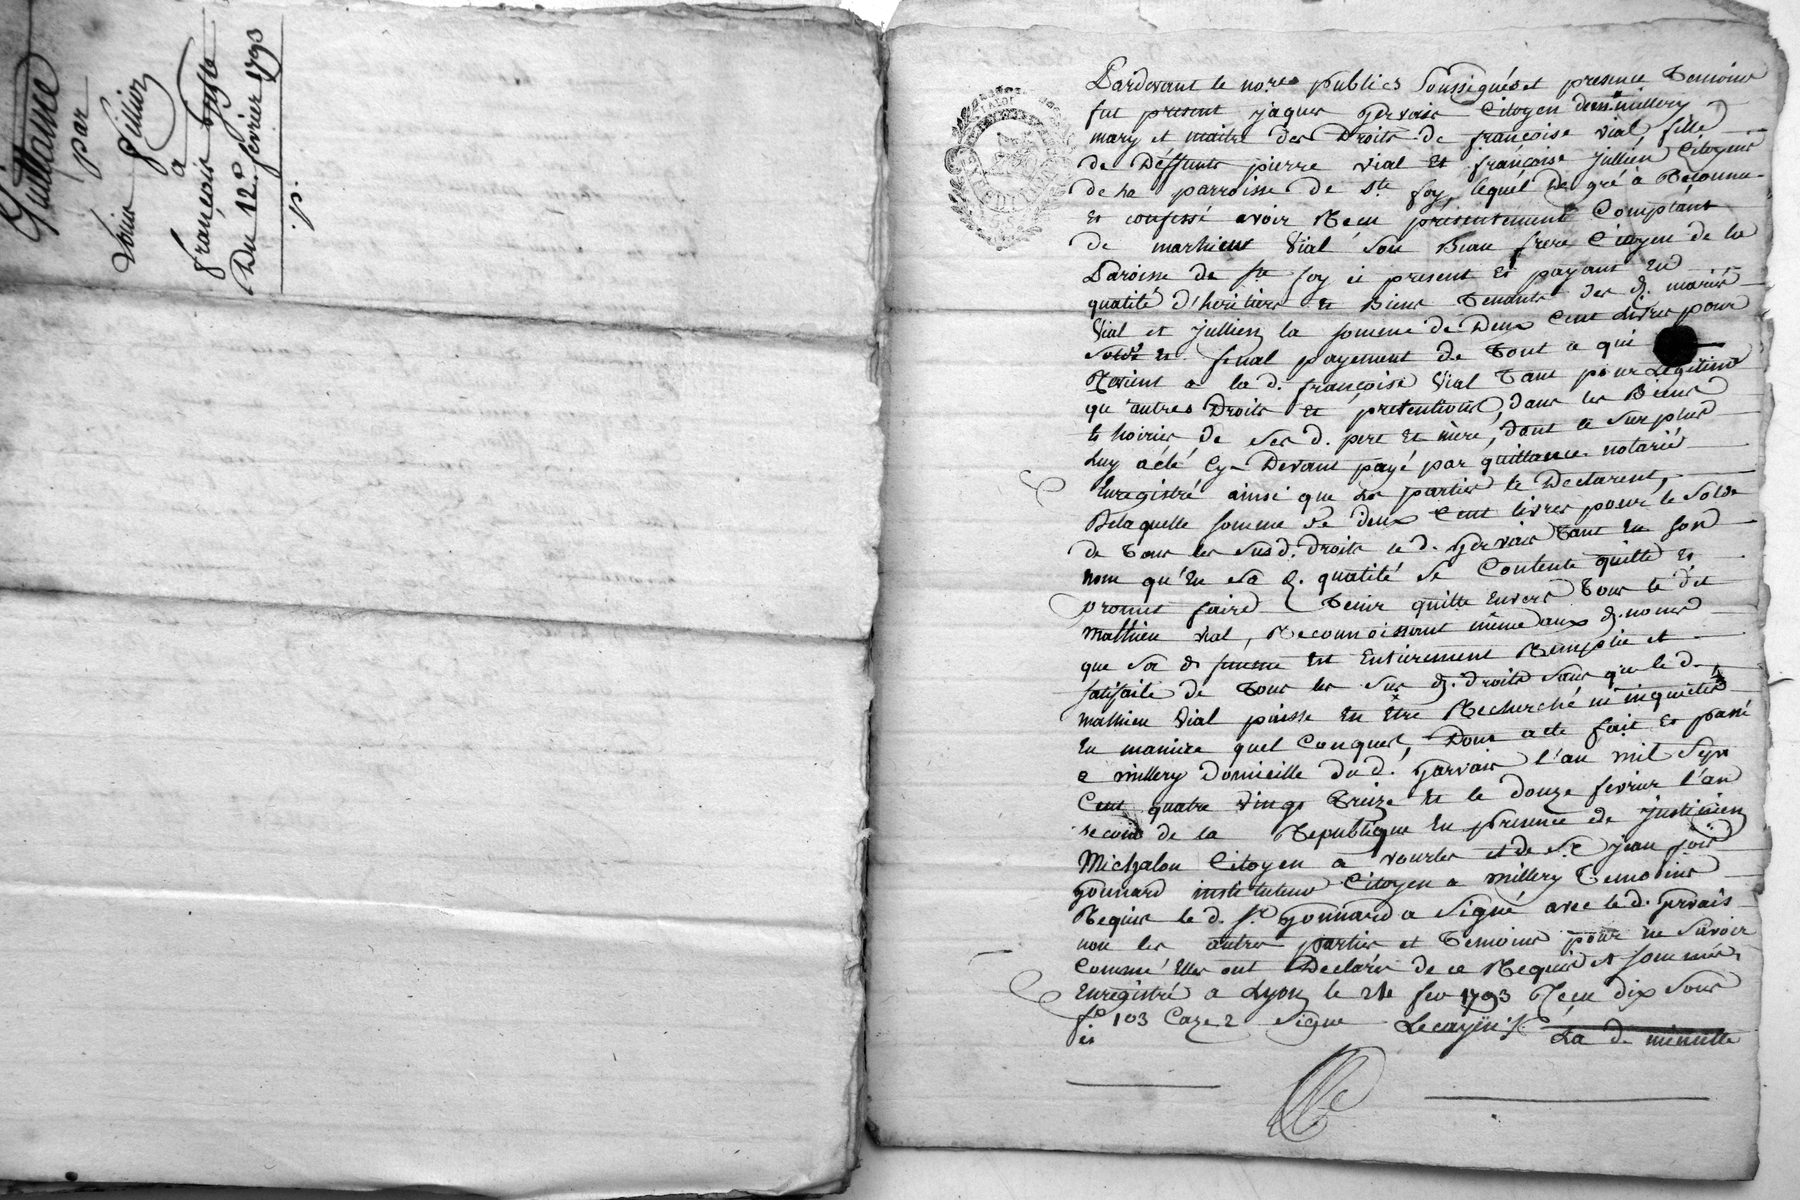 Quittance
par
Louis Pillion
a
françois
Du 12e fevrier 1793
p.
LA LOI
Pardevant le nore publics soussignés et presence Temoins
fut present jaques gervais Citoyen de millery
mary et maitre des Droits de françoise vial fille
de Deffunts pierre vial et françoise jullien Citoyens
de la parroisse de ste foy, lequel de gré à Reconnu
et confessé avoir Receu présentement Comptant
de mathieu Vial son Beau frere Citoyen de la
Paroisse de ste foy ci present et payant en
qualité d'heritiers et Biens Tenants des d. mariés
Vial et jullien la somme de Deux Cent Livres pour
solde et final payement de Tout ce qui
Revient a la d. françoise Vial Tant pour Legitime
qu'autres Droits et pretentions, dans les Biens
et hoiries de ses d. pere et mère, dont le surplus
Luy a été Cy-Devant payé par quittance notarié
Enregistré ainsi que les parties le Declarent,
De laquelle somme de deux Cent livres pour le solde
de Tous les susd. droits le d. gervais Tant en son
nom qu'En sa d. qualité se Contente quitte et
promet faire Tenir quitte Envers Tous le dit
mathieu vial, Reconnoissant même aux d. noms
que sa d. femme est Entierement Remplie et
satisfaite de Tous les sus d. droits sans que le d.
mathieu Vial puisse En être Recherché ni inquieter
En maniere quel Conques, Dont acte fait et passé
a millery Domicille du d. Garvais l'an mil Sept
Cent quatre vingt Treize et le douze fevrier l'an
second de la Republique En presence de justinien
Michalon Citoyen a vourles et de Sr jean fois
gonnard instituteur Citoyen a millery Temoins
Requis le d. Sr gonnard a signé avec le d. gervais
non les autres parties et Temoins pour ne savoir
Comme Elles ont Declarés de ce Requis et sommés.
Enregistré a Lyon le 21e fev 1793 Reçu dix sous
fo 103 Caze 2 signe Lecayin
La d. minutte